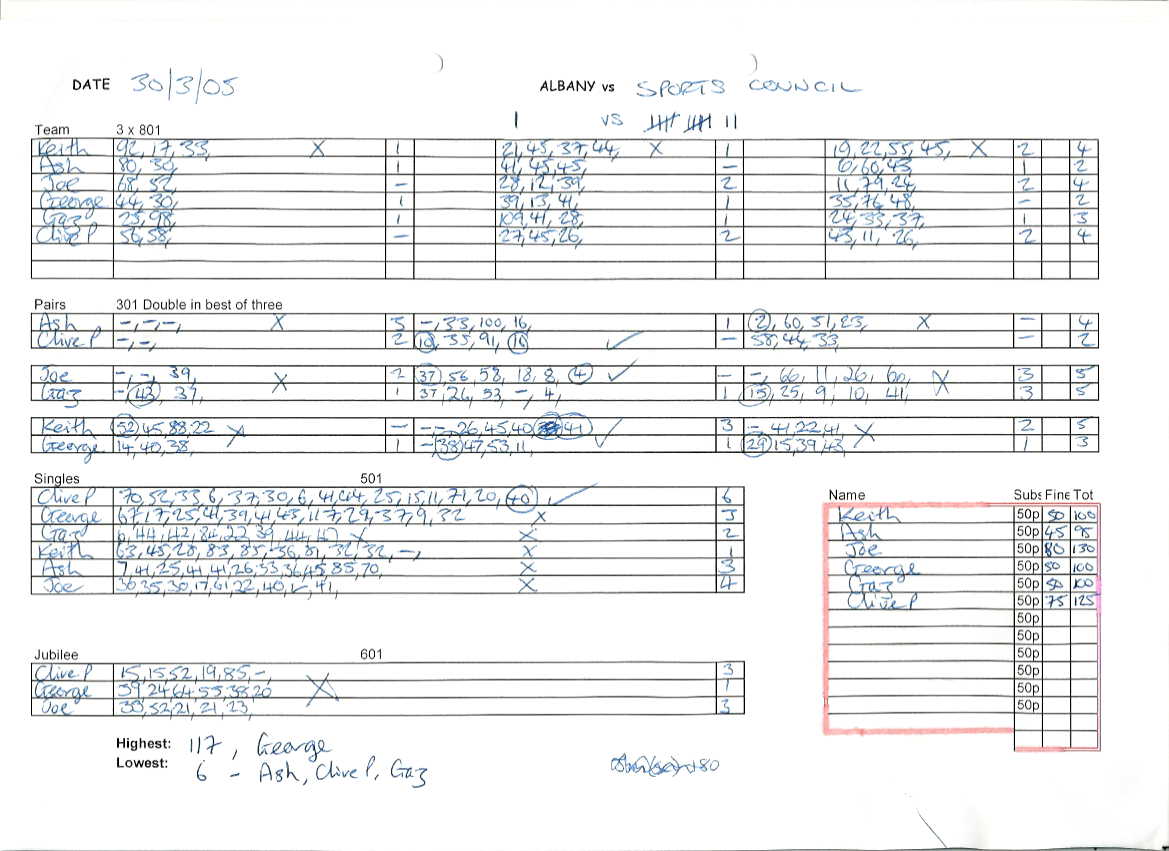 DATE 30/3/05 ALBANY vs SPORTS COUNCIL
1 vs 𝍸 𝍸 11
Team 3 x 801
Keith 92, 17, 33, X 1 21, 45, 37, 44, X 1 19, 22, 55, 45, X 2 4
Ash 80, 30, 1 41, 45, 45, – 6, 60, 43, 1 2
Joe 68, 52, – 28, 12, 39, 2 11, 79, 24, 2 4
George 44, 30, 1 39, 13, 41, 1 35, 76, 48, – 2
Gaz 25, 98, 1 109, 41, 28, 1 24, 33, 37, 1 3
Clive P 56, 58, – 27, 45, 26, 2 43, 11, 26, 2 4
Pairs 301 Double in best of three
Ash –, –, –, X 3 –, 33, 100, 16, 1 2, 60, 51, 23, X – 4
Clive P –, –, 2 10, 35, 91, 16 ✓ – 58, 44, 33, – 2
Joe –, –, 39, X 2 37, 56, 58, 18, 8, 4 ✓ – –, 66, 11, 26, 60, X 3 5
Gaz –, 43, 37, 1 37, 26, 53, –, 4, 1 15, 25, 9, 10, 41, 3 5
Keith 52, 45, 83, 22 X – –, –, 26, 45, 40 41 ✓ 3 – 41, 22, 41, X 2 5
George 14, 40, 38, 1 – 38, 47, 53, 11, 1 29, 15, 39, 43, 1 3
Singles 501
Clive P 70, 52, 33, 6, 37, 30, 6, 41, 44, 25, 15, 11, 71, 20, 40 ✓ 6
George 67, 17, 25, 41, 39, 41, 43, 117, 29, 37, 9, 32 X 3
Gaz 6, 44, 42, 84, 22, 39, 44, X 2
Keith 63, 45, 28, 83, 85, 36, 81, 32, 32, –, X 1
Ash 7, 41, 25, 41, 41, 26, 33, 36, 45, 85, 70, X 3
Joe 36, 35, 30, 17, 61, 22, 40, 41, X 4
Name Subs Fine Tot
Keith 50p 50 100
Ash 50p 45 95
Joe 50p 80 130
George 50p 50 100
Gaz 50p 50 100
Clive P 50p 75 125
50p
50p
50p
50p
50p
50p
Jubilee 601
Clive P 15, 15, 52, 19, 85, –, 3
George 39, 24, 64, 55, 38, 20 X 1
Joe 38, 52, 21, 21, 23, 3
Highest: 117, George
Lowest: 6 – Ash, Clive P, Gaz